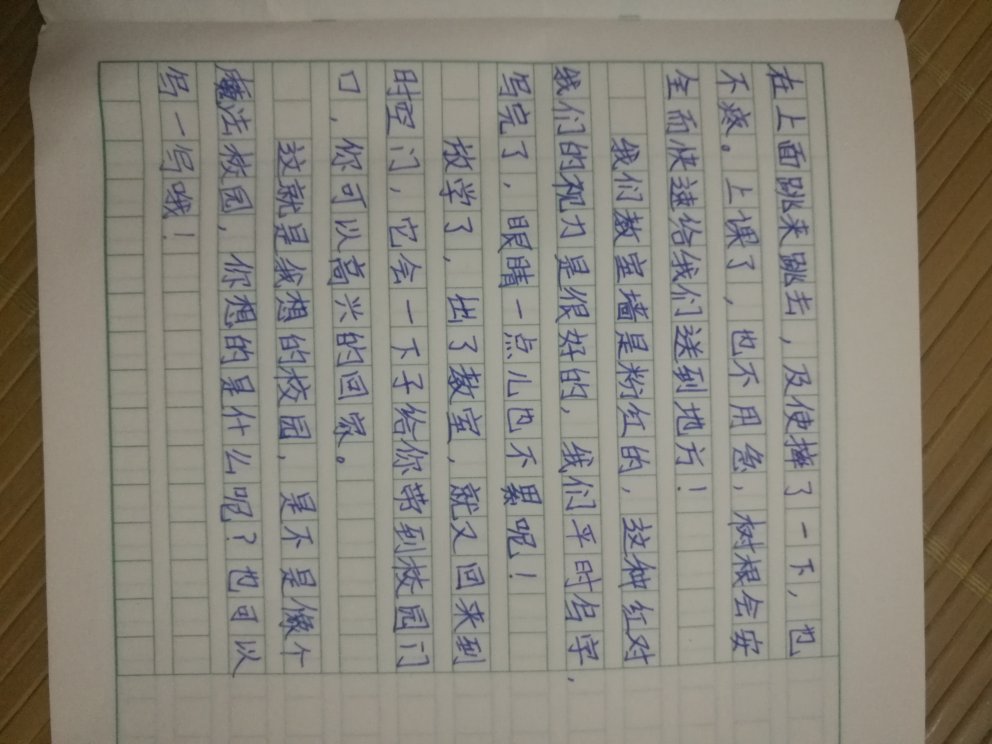 在上面跳来跳去，及使摔了一下，也
不疼。上课了，也不用急，树根会安
全而快速给我们送到地方！
我们教室墙是粉红的，这种红对
我们的视力是很好的，我们平时写字，
写完了，眼睛一点儿也不累呢！
放学了，出了教室，就又回来到
时空门，它会一下子给你带到校园门
口，你可以高兴的回家。
这就是我想的校园，是不是像个
魔法校园，你想的是什么呢？也可以
写一写哦！